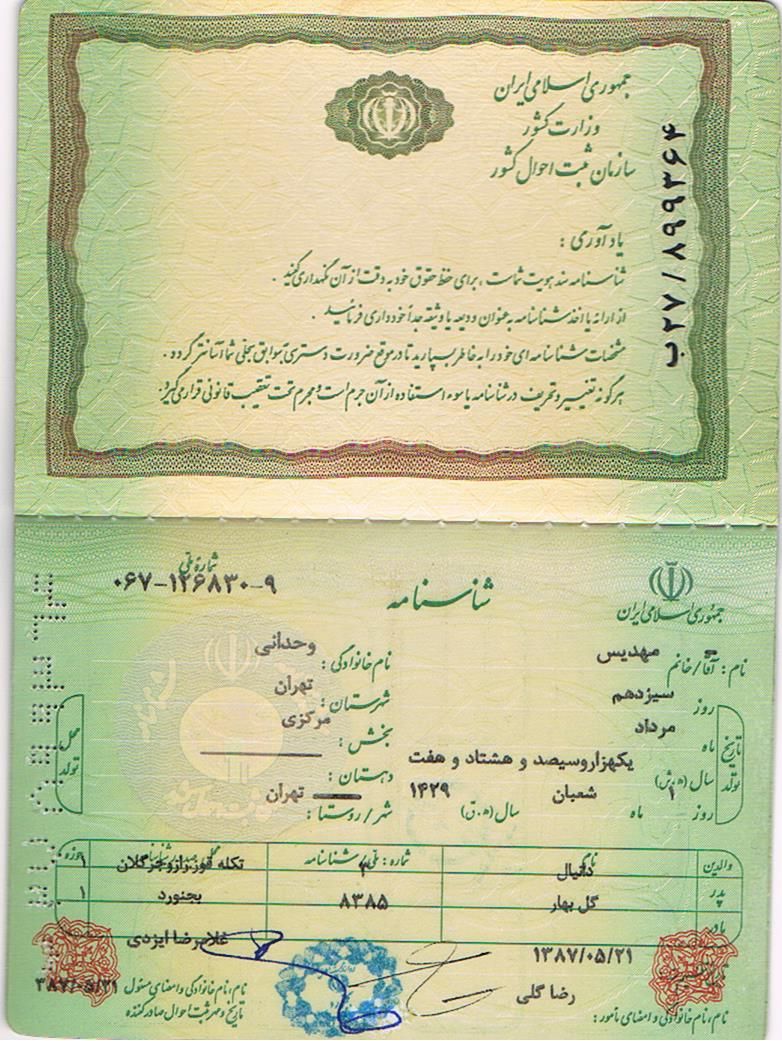 جمهوری اسلامی ایران
وزارت کشور
سازمان ثبت احوال کشور
ب۲۷/۸۹۹۳۶۴
یادآوری :
شناسنامه سند هویت شماست ، برای حفظ حقوق خود به دقت از آن نگهداری کنید .
از ارائه یا اخذ شناسنامه به عنوان ودیعه یا وثیقه جداً خودداری فرمائید .
مشخصات شناسنامه ای خود را به خاطر بسپارید تا در موقع ضرورت دسترسی به سوابق سجلی شما آسانتر گردد .
هرگونه تغییر و تحریف در شناسنامه یا سوء استفاده از آن جرم است و مجرم تحت تعقیب قانونی قرار می گیرد.
جمهوری اسلامی ایران
شناسنامه
شماره ملی
۰۶۷-۱۲۶۸۳۰-۹
نام : آقا/خانم مهدیس
نام خانوادگی : وحدانی
تاریخ تولد
روز سیزدهم
ماه مرداد
سال (ه.ش) یکهزاروسیصد و هشتاد و هفت
روز ۱ ماه شعبان سال (ه.ق) ۱۴۲۹
محل تولد
شهرستان : تهران
بخش : مرکزی
دهستان :
شهر / روستا : تهران
والدین نام شماره ملی شناسنامه حوزه
پدر دانیال ۳ تکله قوز.رازوجرگلان ۱
مادر گل بهار ۸۳۸۵ بجنورد ۱
۱۳۸۷/۰۵/۲۱
رضا گلی
نام، نام خانوادگی و امضای مأمور :
غلامرضا ایزدی
۱۳۸۷/۰۵/۲۱
نام، نام خانوادگی و امضای مسئول
تاریخ و مهر ثبت احوال صادر کننده